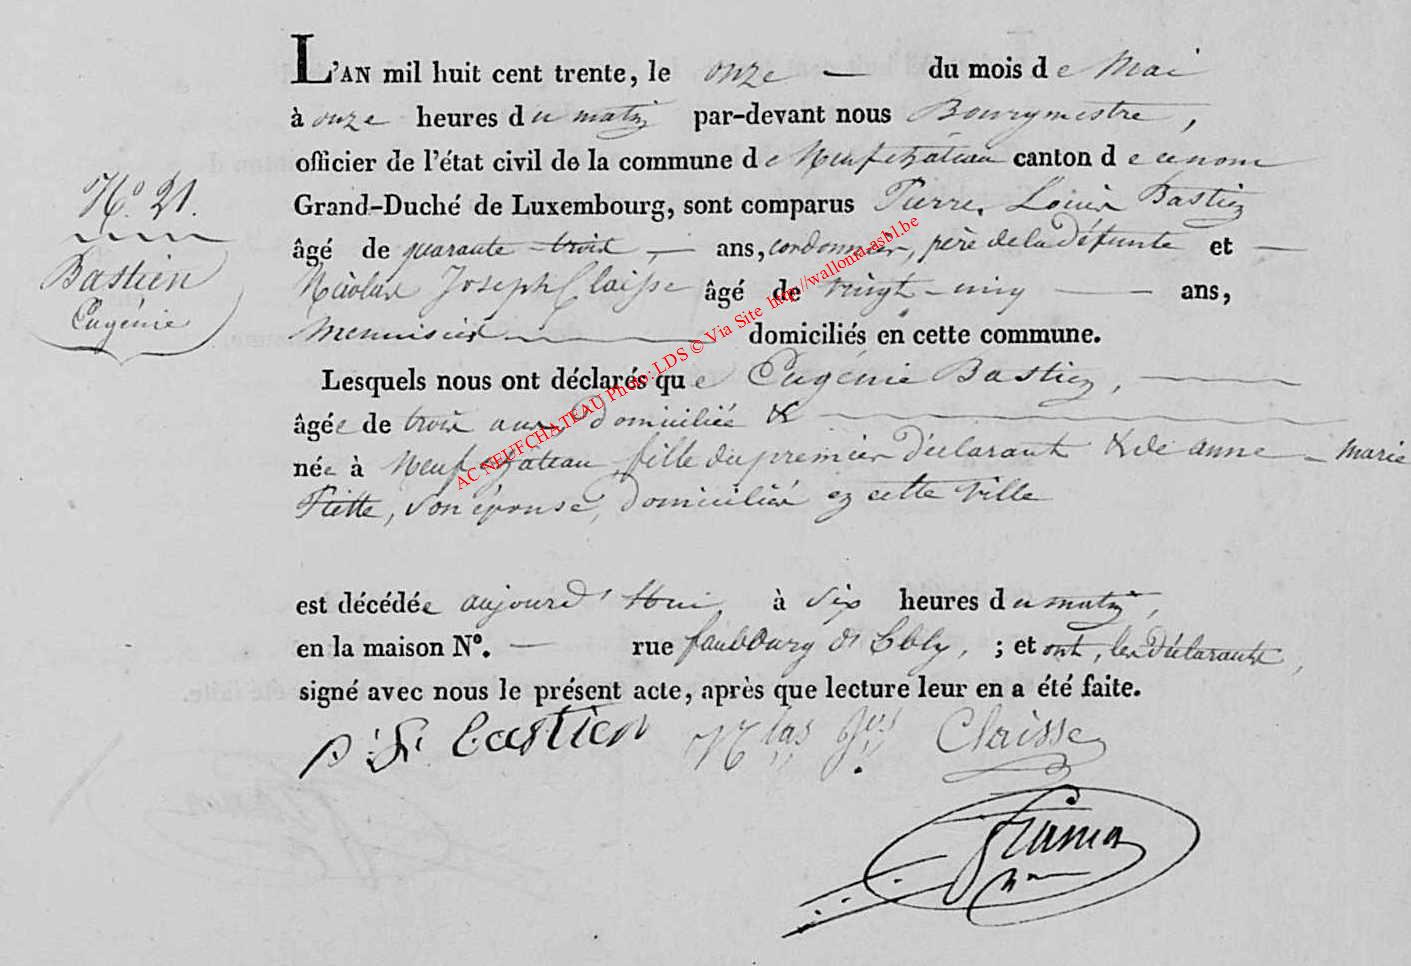 L'AN mil huit cent trente, le onze — du mois de Mai
à onze heures du matin par-devant nous Bourgmestre,
officier de l'état civil de la commune de Neufchâteau canton de ce nom
Grand-Duché de Luxembourg, sont comparus Pierre Louis Bastien
N.º 21.
âgé de quarante trois — ans, cordonnier, père de la défunte et —
Bastien
Eugénie
Nicolas Joseph Claisse âgé de vingt-cinq — ans,
Menuisier — domiciliés en cette commune.
Lesquels nous ont déclarés que Eugénie Bastien, —
âgée de trois ans domiciliée &
née à Neufchâteau fille du premier déclarant & de anne-marie
son épouse, domiciliés en cette ville
est décédée aujourd'hui à six heures du matin,
en la maison Nº. — rue faubourg d ; et ont, les déclarants,
signé avec nous le présent acte, après que lecture leur en a été faite.
P: L: Bastien Nlas Jph Claisse
AC NEUFCHATEAU Photo: LDS © Via Site http://wallonia-asbl.be